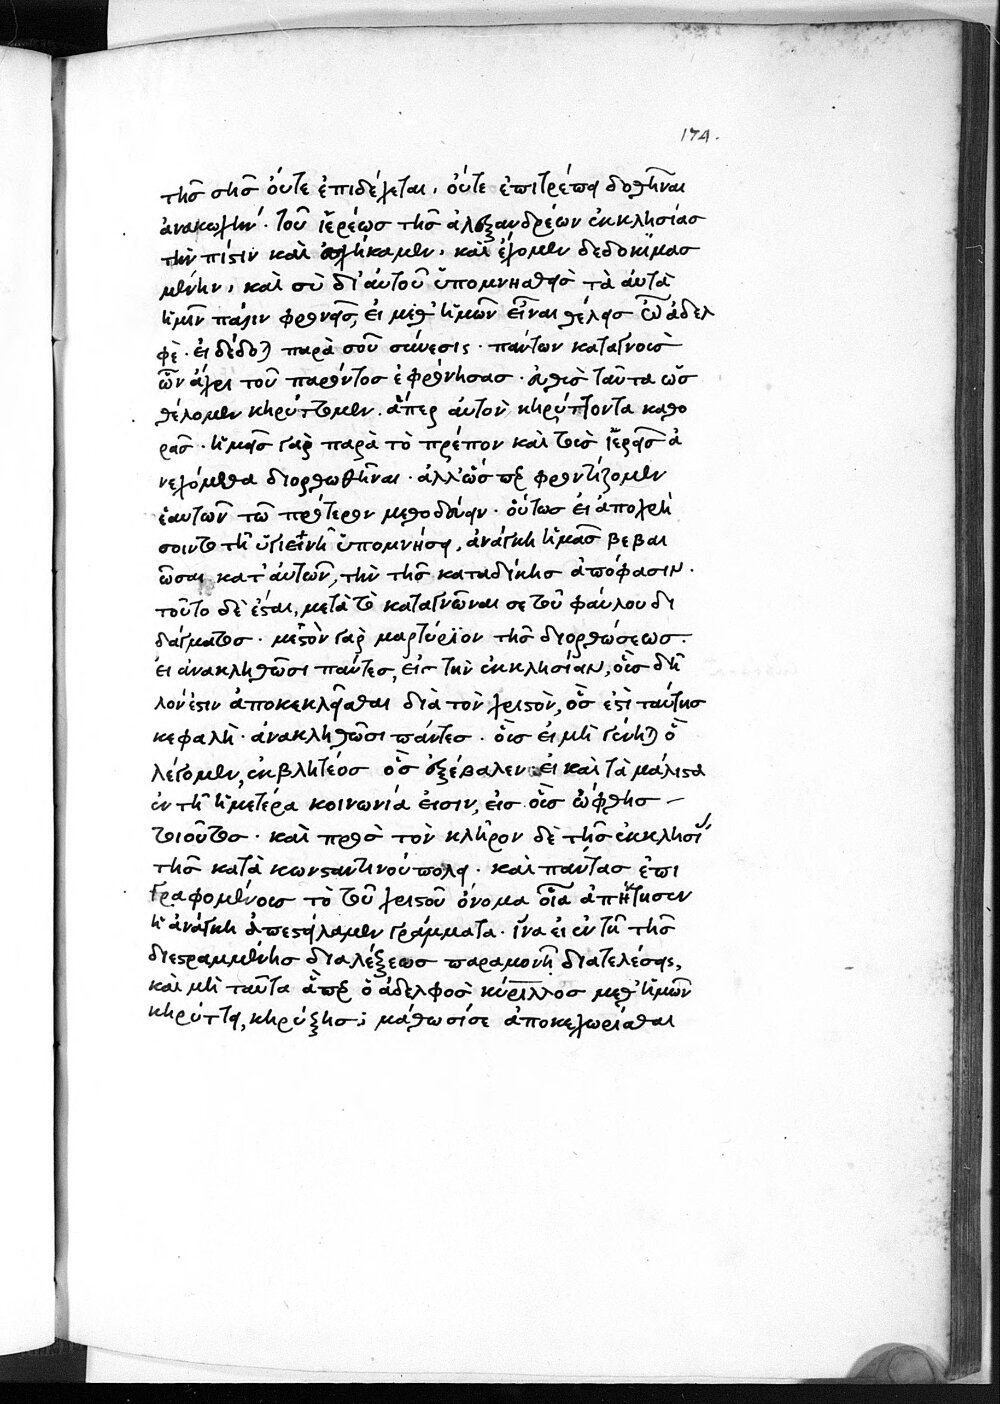 174.
τῆς σῆς οὔτε ἐπιδέχεται, οὔτε ἐπιτρέπει δοθῆναι
ἀνακωχήν. τοῦ ἱερέως τῆς ἀλεξανδρέων ἐκκλησίας
τὴν πίστιν καὶ ἐσχήκαμεν, καὶ ἔχομεν δεδοκιμασ
μένην, καὶ σὺ δι' αὐτοῦ ὑπομνησθεὶς τὰ αὐτὰ
ἡμῖν πάλιν φρόνησον, εἰ μεθ' ἡμῶν εἶναι θέλεις ὦ ἀδελ
φέ. εἰ δέδοται παρὰ σοῦ σύνεσις. πάντων καταγνοὺς
ὧν ἄχρι τοῦ παρόντος ἐφρόνησας. εὐθὺς ταῦτα ὥς
θέλομεν κηρύττωμεν. ἅπερ αὐτὸν κηρύττοντα καθο
ρᾷς. ἡμᾶς γὰρ παρὰ τὸ πρέπον καὶ τοὺς ἱερεῖς ἀ
νεχόμεθα διορθωθῆναι. ἀλλ' ὥσπερ φροντίζομεν
ἑαυτῶν τῷ πρότερον μεθοδεύειν. οὕτως εἰ ἀποχρή
σοιντο τῇ ὑγιεινῇ ὑπομνήσει, ἀνάγκη ἡμᾶς βεβαι
ῶσαι κατ' αὐτῶν, τὴν τῆς καταδίκης ἀπόφασιν.
τοῦτο δὲ ἔσται, μετὰ τὸ καταγνῶναι σε τοῦ φαύλου δι
δάγματος. μεστὸν γὰρ μαρτύριον τῆς διορθώσεως.
εἰ ἀνακληθῶσι πάντες, εἰς τὴν ἐκκλησίαν, οὓς δῆ
λον ἐστιν ἀποκεκλεῖσθαι διὰ τὸν χριστὸν, ὅς ἐστι ταύτης
κεφαλή. ἀνακληθῶσι πάντες. οἷς εἰ μὴ γένηται ὃ
λέγομεν, ἐκβλητέος ὃς ἐξέβαλεν. εἰ καὶ τὰ μάλιστα
ἐν τῇ ἡμετέρα κοινωνία εἰσιν, εἰς οὓς ὤφθης
τοιοῦτος. καὶ πρὸς τὸν κλῆρον δὲ τῆς ἐκκλησί
τῆς κατὰ κωνσταντινούπολει. καὶ πάντας ἐπι
γραφομένους τὸ τοῦ χριστοῦ ὄνομα οἷα ἀπῄτησεν
ἡ ἀνάγκη ἀπεστείλαμεν γράμματα. ἵνα εἰ ἐν τῇ τῆς
διεστραμμένης διαλέξεως παραμονῇ διατελέσεις,
καὶ μὴ ταῦτα ἅπερ ὁ ἀδελφὸς κύριλλος μεθ' ἡμῶν
κηρύττει, κηρύξης; μάθωσί σε ἀποκεχωρίσθαι